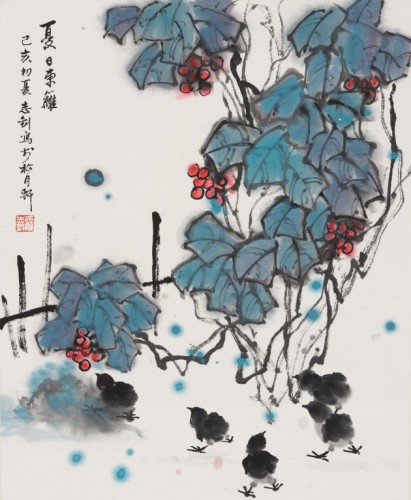 夏日東籬
己亥初夏志 寫於 月軒